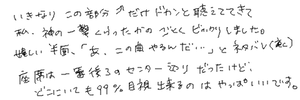 いきなり この部分だけドカンと聴えてきて
私、神の一撃くらったかのごとく、ビックリしました。
嬉しい半面、「あ、この曲やるんだ…」とネタバレ(私)
座席は一番後ろのセンター辺りだったけど、
どこにいても99%目視出来るのは やっぱいいです。